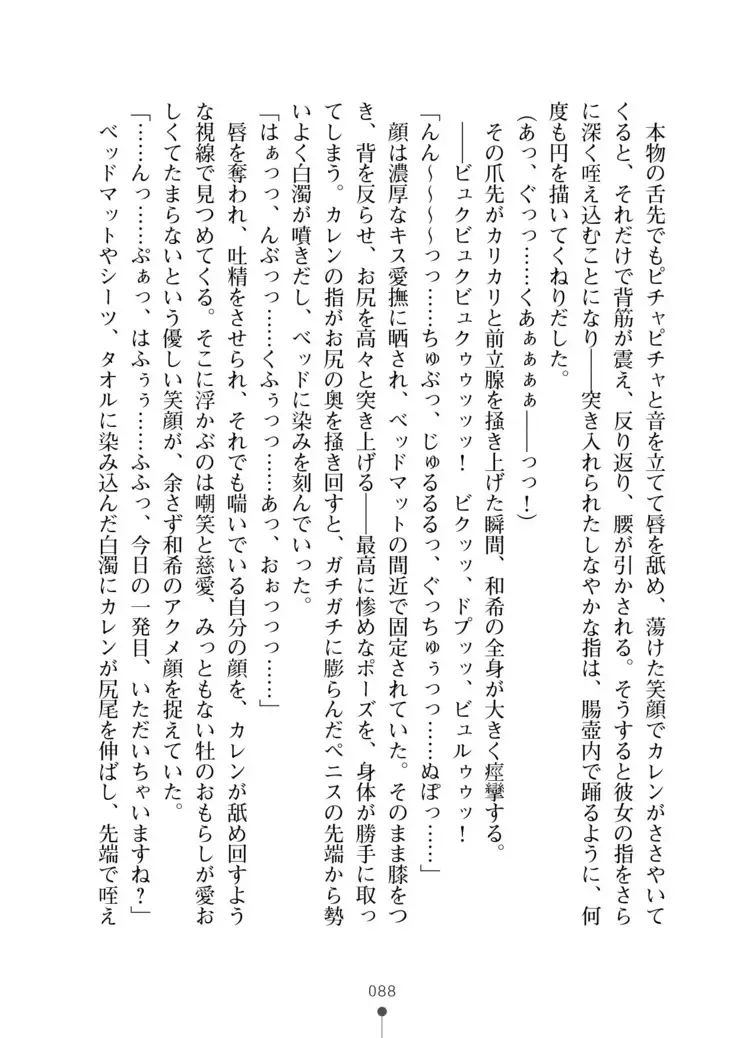 本物の舌先でもピチャピチャと音を立てて唇を舐め、蕩けた笑顔でカレンがささやいて
くると、それだけで背筋が震え、反り返り、腰が引かされる。そうすると彼女の指をさら
に深く咥え込むことになり――突き入れられたしなやかな指は、腸壺内で踊るように、何
度も円を描いてくねりだした。
（あっ、ぐっっ……くあぁぁぁぁ――っっ！）
　その爪先がカリカリと前立腺を掻き上げた瞬間、和希の全身が大きく痙攣する。
　――ビュクビュクビュクゥゥッッッ！　ビクッッ、ドプッッ、ビュルゥゥッ！
「んん～～～～～っっ……ちゅぶっ、じゅるるるっ、ぐっちゅぅっっ……ぬぽっ……」
　顔は濃厚なキス愛撫に晒され、ベッドマットの間近で固定されていた。そのまま膝をつ
き、背を反らせ、お尻を高々と突き上げる――最高に惨めなポーズを、身体が勝手に取っ
てしまう。カレンの指がお尻の奥を掻き回すと、ガチガチに膨らんだペニスの先端から勢
いよく白濁が噴きだし、ベッドに染みを刻んでいった。
「はぁっっ、んぶっっ……くふぅっっ……あっ、おぉっっっ……」
　唇を奪われ、吐精をさせられ、それでも喘いでいる自分の顔を、カレンが舐め回すよう
な視線で見つめてくる。そこに浮かぶのは嘲笑と慈愛、みっともない牡のおもらしが愛お
しくてたまらないという優しい笑顔が、余さず和希のアクメ顔を捉えていた。
「……んっ……ぷぁっ、はふぅぅ……ふふっ、今日の一発目、いただいちゃいますね？」
　ベッドマットやシーツ、タオルに染み込んだ白濁にカレンが尻尾を伸ばし、先端で咥え
088